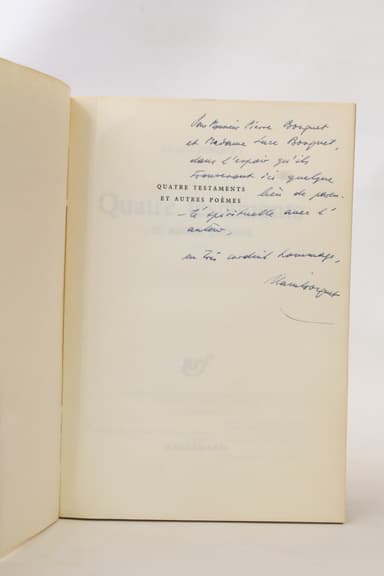 Pour Monsieur Pierre Bosquet
et Madame Luce Bosquet,
dans l'espoir qu'ils
trouveront ici quelque
lien de paren-
té spirituelle avec l'
auteur,
en très cordial hommage,
Alain Bosquet
QUATRE TESTAMENTS
ET AUTRES POÈMES